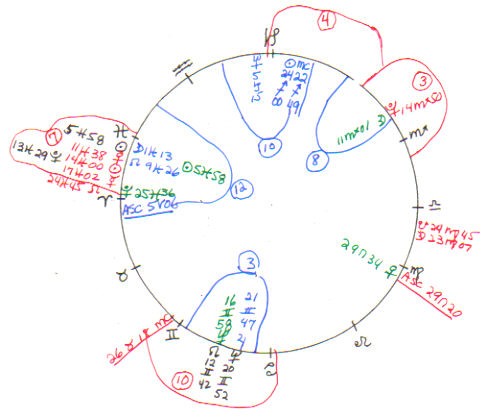 ④
♑
③
☉ MC
24 22
♐ ♐
00 49
♀14♏50
11♏01
♏
⑩
⑧
⑦
5♓58
13♓29♀
11♓38
14♓00
17♓02
24♓45 ☊
♓
☽1♓13
☊ 9♓26
☉5♓58
♀25♓36
ASC 5♈06
⑫
♈
♎
☿29♍45
☽23♍07
29♌34 ♀
♍
ASC 29♌20
♉
③
16
♊
58
21
♊
47
26♉18 MC
♊
♋
♌
⑩
☊
12
♊
42
20
♊
52